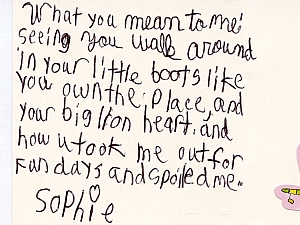 What you mean to me:
seeing you walk around
in your little boots like
you own the place, and
your big lion heart. and
how u took me out for
fun days and spoiled me.
Sophie